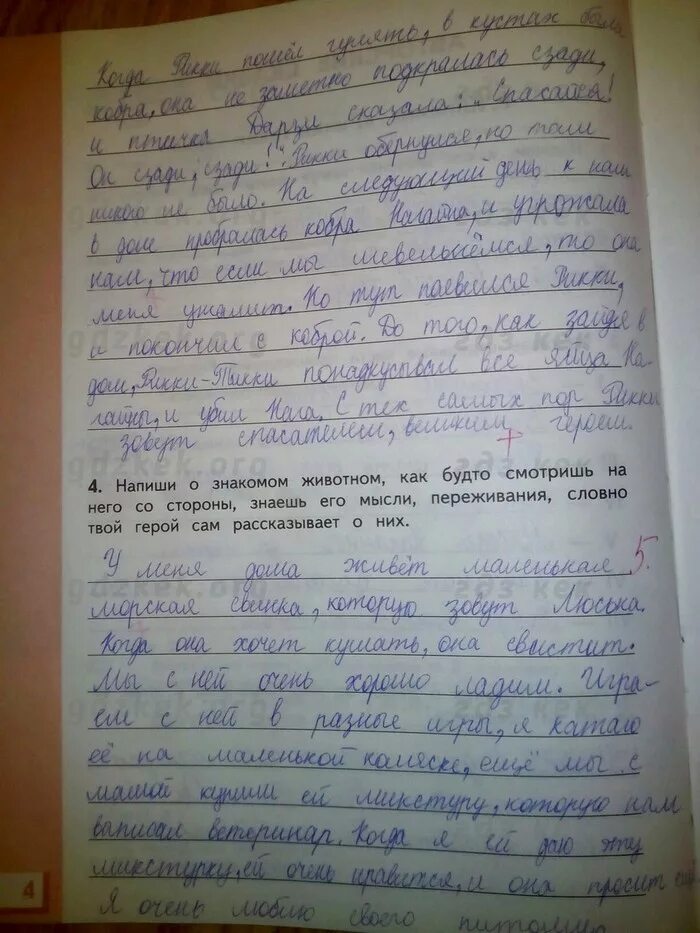 Когда Рикки пошёл гулять, в кустах была
кобра, она не заметно подкралась сзади,
и птичка Дарзи сказала: „Спасайся!
Он сзади, сзади!“ Рикки обернулся, но там
никого не было. На следующий день к нам
в дом пробралась кобра Нагайна, и угрожала
нам, что если мы шевельнёмся, то она
меня ужалит. Но тут появился Рикки,
и покончил с коброй. До того, как зайдя в
дом, Рикки-Тикки понадкусывал все яйца На-
гайны, и убил Нага. С тех самых пор Рикки
зовут спасателем, великим героем.
4. Напиши о знакомом животном, как будто смотришь на
него со стороны, знаешь его мысли, переживания, словно
твой герой сам рассказывает о них.
У меня дома живёт маленькая 5.
морская свинка, которую зовут Люська.
Когда она хочет кушать, она свистит.
Мы с ней очень хорошо ладим. Игра-
ем с ней в разные игры, я катаю
её на маленькой коляске, ещё мы с
мамой купили ей микстуру, которую нам
выписал ветеринар. Когда я ей даю эту
микстурку, ей очень нравится, и она просит ещё
Я очень люблю своего питомца
4
gdzkek.org
гдз кек